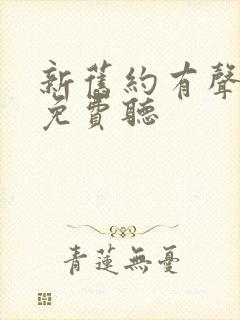 新舊約有聲
免費聽
青蓮無憂